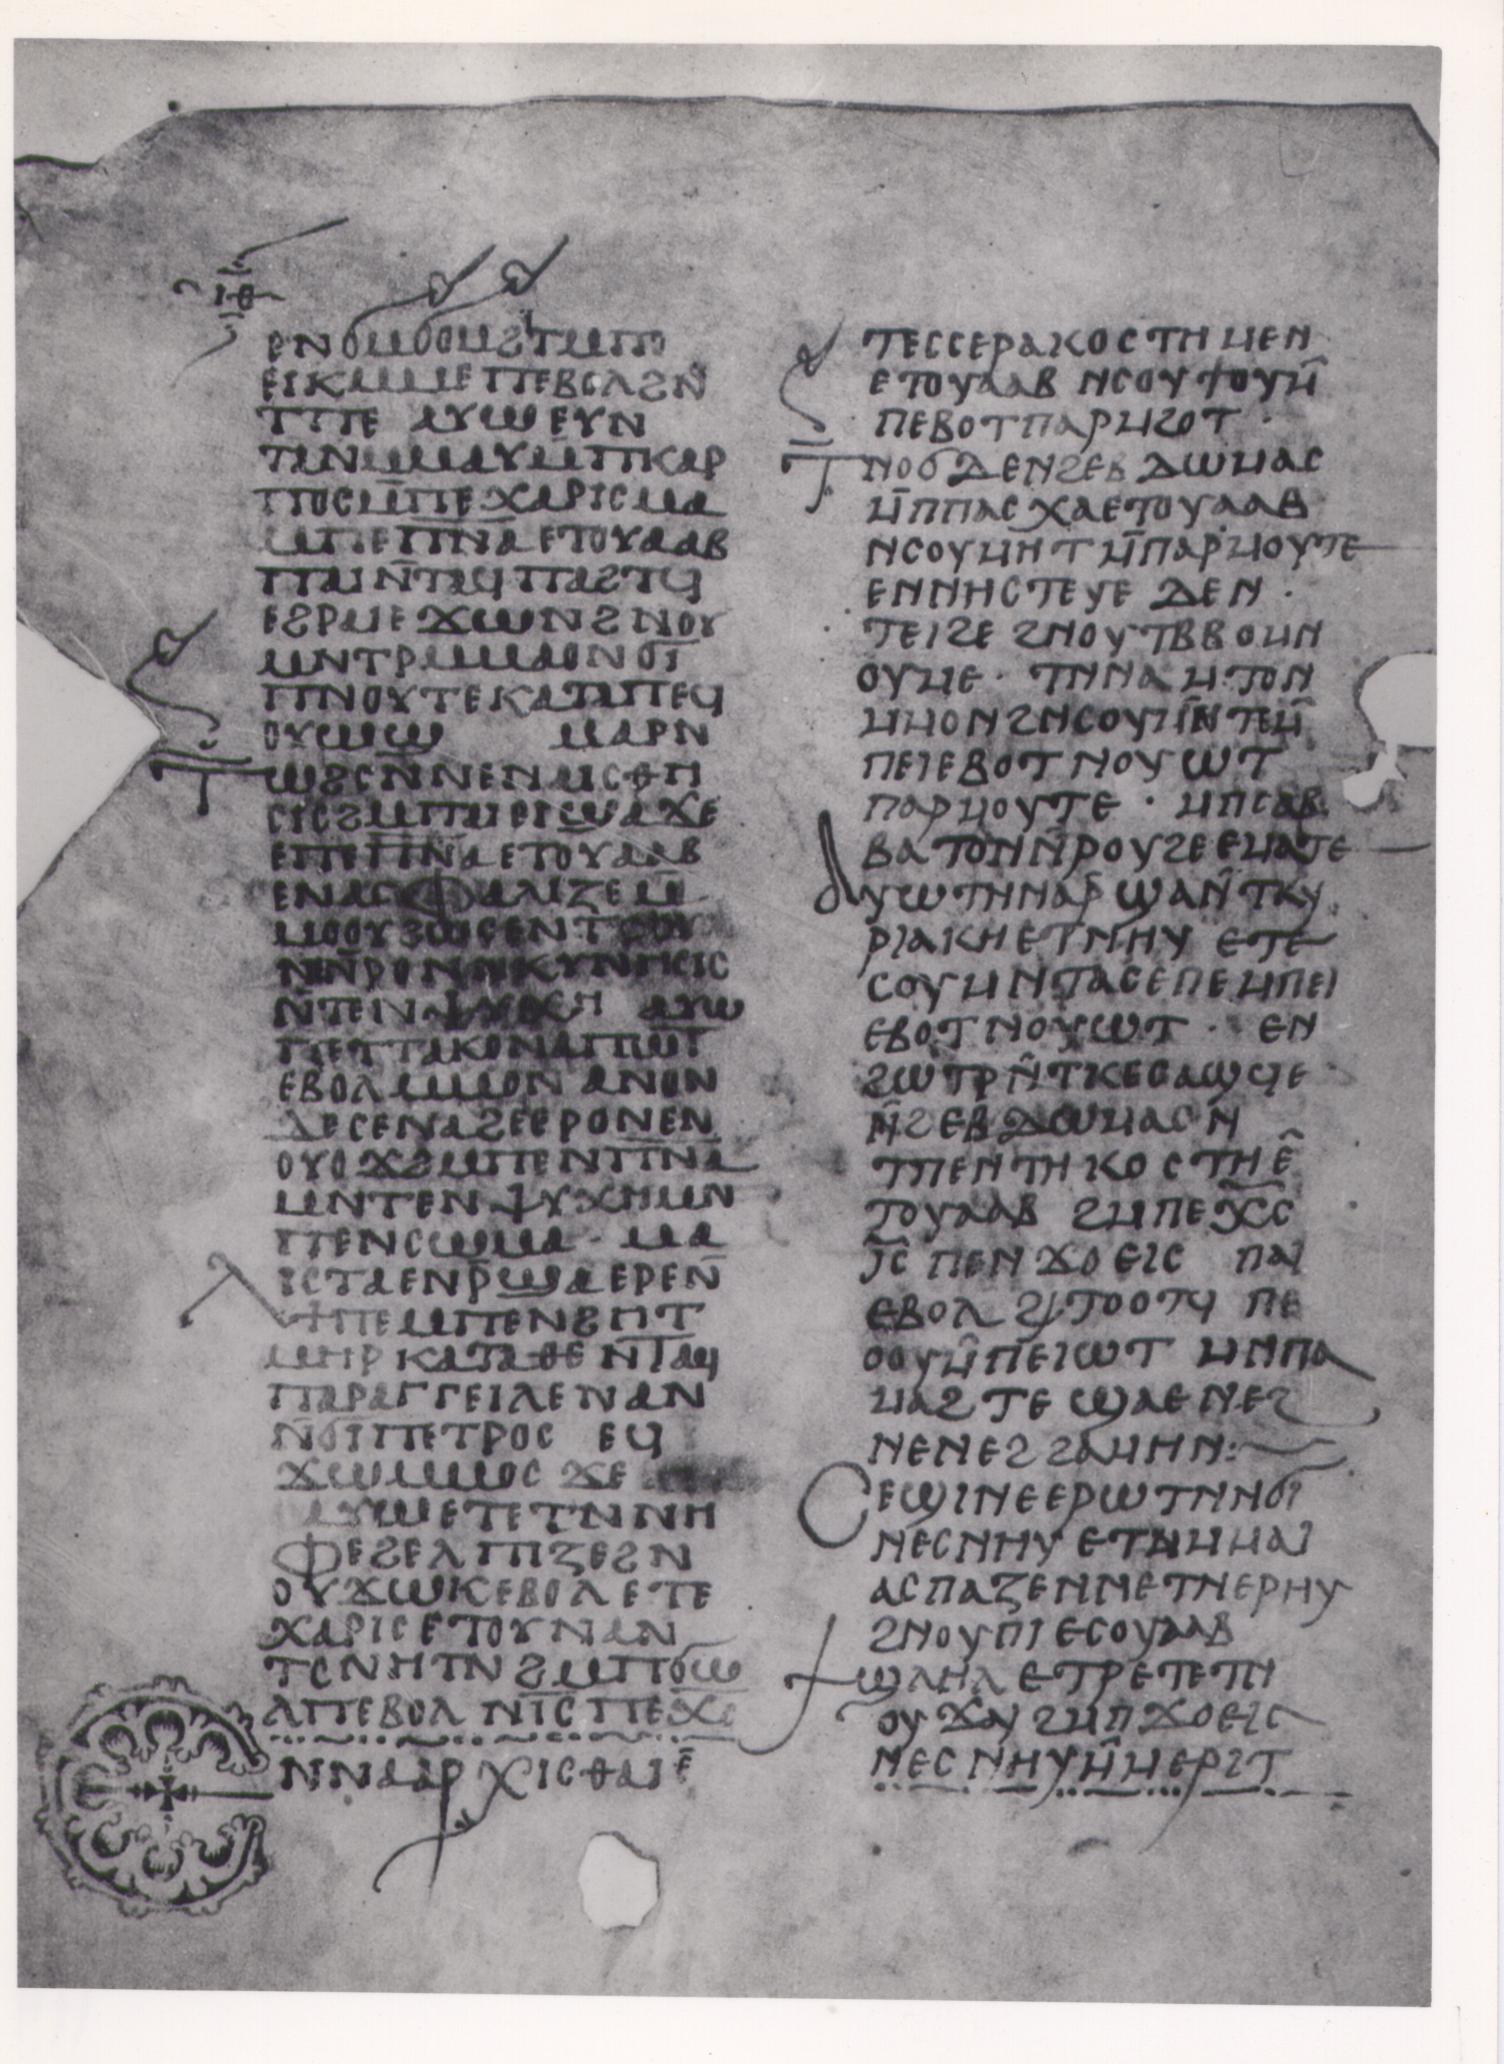 ⲓⲑ
ⲣⲛϭⲙϭⲟⲙϩⲧⲙⲡ
ⲉⲓⲕⲱⲙⲉ ⲡⲉⲃⲟⲗϩⲛ̄
ⲧⲡⲉ ⲁⲩⲱ ⲉⲩⲛ
ⲧⲁⲛⲙⲙⲁⲩⲙ̄ⲡⲕⲁⲣ
ⲡⲟⲥⲙ̄ⲡⲉⲭⲁⲣⲓⲥⲙⲁ
ⲙⲡⲉⲡ̅ⲛ̅ⲁ̅ ⲉⲧⲟⲩⲁⲁⲃ
ⲡⲁⲓⲛ̄ⲧⲁϥⲡⲁϩⲧϥ
ⲉϩⲣⲁⲓⲉϫⲱⲛϩⲛⲟⲩ
ⲙⲛⲧⲣⲙⲙⲁⲟⲛϭⲓ
ⲡⲛⲟⲩⲧⲉⲕⲁⲧⲁⲡⲉϥ
ⲟⲩⲱϣ ⲙⲁⲣⲛ
ⲱϩⲥⲛ̄ⲛⲉⲛⲁⲓⲥⲑⲏ
ⲥⲓⲥϩⲙⲡⲧⲣⲉⲓϣⲁϫⲉ
ⲉⲡⲉⲡ̅ⲛ̅ⲁ̅ ⲉⲧⲟⲩⲁⲁⲃ
ⲉⲛⲁⲥⲫⲁⲗⲓⲍⲉⲙ̄
ⲙⲟⲟⲩ ϩⲱⲥⲉⲛⲧⲟⲟⲩ
ⲛⲉⲛ̄ⲣⲟⲛⲛⲕⲩⲛⲏⲥⲓⲥ
ⲛⲧⲉⲛⲯⲩⲭⲏ ⲁⲩⲱ
ⲡⲉⲧⲧⲁⲕⲟⲛⲁⲡⲱⲧ
ⲉⲃⲟⲗⲙⲙⲟⲛ ⲁⲛⲟⲛ
ⲇⲉⲥⲉⲛⲁϩⲉⲉⲣⲟⲛⲉⲛ
ⲟⲩⲟϫϩⲙⲡⲉⲛⲡ̅ⲛ̅ⲁ̅
ⲙⲛⲧⲉⲛⲯⲩⲭⲏⲙⲛ
ⲡⲉⲛⲥⲱⲙⲁ · ⲙⲁ
ⲗⲓⲥⲧⲁⲉⲛⲣ̄ϣⲁⲉⲣⲉⲛ̄
ϯⲡⲉⲙⲡⲉⲛϩⲏⲧ
ⲙⲏⲣ ⲕⲁⲧⲁⲑⲉ ⲛⲧⲁϥ
ⲡⲁⲣⲁⲅⲅⲉⲓⲗⲉⲛⲁⲛ
ⲛ̄ϭⲓⲡⲉⲧⲣⲟⲥ ⲉϥ
ϫⲱⲙⲙⲟⲥ ϫⲉ
ⲁⲩⲱⲉⲧⲉⲧⲛⲛⲏ
ⲫⲉϩⲉⲗⲡⲓⲍⲉϩⲛ
ⲟⲩϫⲱⲕⲉⲃⲟⲗ ⲉⲧⲉ
ⲭⲁⲣⲓⲥⲉⲧⲟⲩⲛⲁⲛ
ⲧⲥⲛⲏⲧⲛ ϩⲙⲡϭⲱ
ⲗⲡⲉⲃⲟⲗ ⲛⲓ̅ⲥ̅ ⲡⲉⲭ̅ⲥ̅
ⲉⲛⲛⲁⲁⲣⲭⲓⲥⲑⲁⲓⲉ̄
ⲧⲉⲥⲥⲉⲣⲁⲕⲟⲥⲧⲏ ⲙⲉⲛ
ⲉⲧⲟⲩⲁⲁⲃ ⲛⲥⲟⲩϯⲟⲩⲙ̄
ⲡⲉⲃⲟⲧⲡⲁⲣⲙϩⲟⲧ ·
ⲧⲛⲟϭ ⲇⲉⲛϩⲉⲃⲇⲱⲙⲁⲥ
ⲙ̄ⲡⲡⲁⲥⲭⲁⲉⲧⲟⲩⲁⲁⲃ
ⲛⲥⲟⲩⲙⲏⲧ ⲙ̄ⲡⲁⲣⲙⲟⲩⲧⲉ
ⲉⲛⲛⲏⲥⲧⲉⲩⲉ ⲇⲉⲛ ·
ⲧⲉⲓϩⲉ ϩⲛⲟⲩⲧⲃⲃⲟⲙⲛ
ⲟⲩⲙⲉ · ⲧⲛⲛⲁⲙⲧⲟⲛ
ⲙⲙⲟⲛ ϩⲛⲥⲟⲩⲓ̅ⲛ̅ⲧⲉⲙ̄
ⲡⲉⲓⲉⲃⲟⲧ ⲛⲟⲩⲱⲧ
ⲡⲁⲣⲙⲟⲩⲧⲉ · ⲙⲡⲥⲁⲃ
ⲃⲁⲧⲟⲛⲛ̄ⲣⲟⲩϩⲉ ⲉⲙⲁⲧⲉ
ⲁⲩⲱⲧⲛⲛⲁⲣ̄ϣⲁⲛ̄ⲧⲕⲩ
ⲣⲓⲁⲕⲏⲉⲧⲛⲏⲩ ⲉⲧⲉ
ⲥⲟⲩⲙⲛⲧⲁⲥⲉⲡⲉ ⲙⲡⲉⲓ
ⲉⲃⲟⲧ ⲛⲟⲩⲱⲧ · ⲉⲛ
ϩⲱⲧⲣⲛ̄ⲧⲕⲉⲥⲁϣϥⲉ
ⲛ̄ϩⲉⲃⲇⲱⲙⲁⲥ ⲛ
ⲧⲡⲉⲛⲧⲏⲕⲟⲥⲧⲏ ⲉ̄
ⲧⲟⲩⲁⲁⲃ ϩⲙⲡⲉⲭ̅ⲥ̅
ⲓ̅ⲥ̅ ⲡⲉⲛϫⲟⲉⲓⲥ ⲡⲁⲓ
ⲉⲃⲟⲗ ϩⲓⲧⲟⲟⲧϥ ⲡⲉ
ⲟⲟⲩⲙ̄ⲡⲉⲓⲱⲧ ⲙⲛⲡⲁ
ⲙⲁϩⲧⲉ ϣⲁⲉⲛⲉϩ
ⲛⲉⲛⲉϩ ϩⲁⲙⲏⲛ:
ⲥⲉϣⲓⲛⲉⲉⲣⲱⲧⲛⲛϭⲓ
ⲛⲉⲥⲛⲏⲩ ⲉⲧⲛⲙⲙⲁⲓ
ⲁⲥⲡⲁⲍⲉⲛⲛⲉⲧⲛⲉⲣⲏⲩ
ϩⲛⲟⲩⲡⲓ ⲉⲥⲟⲩⲁⲁⲃ
ϯϣⲗⲏⲗ ⲉⲧⲣⲉⲧⲉⲧⲛ
ⲟⲩϫⲁⲓ ϩⲙⲡϫⲟⲉⲓⲥ
ⲛⲉⲥⲛⲏⲩⲙ̄ⲙⲉⲣⲓⲧ